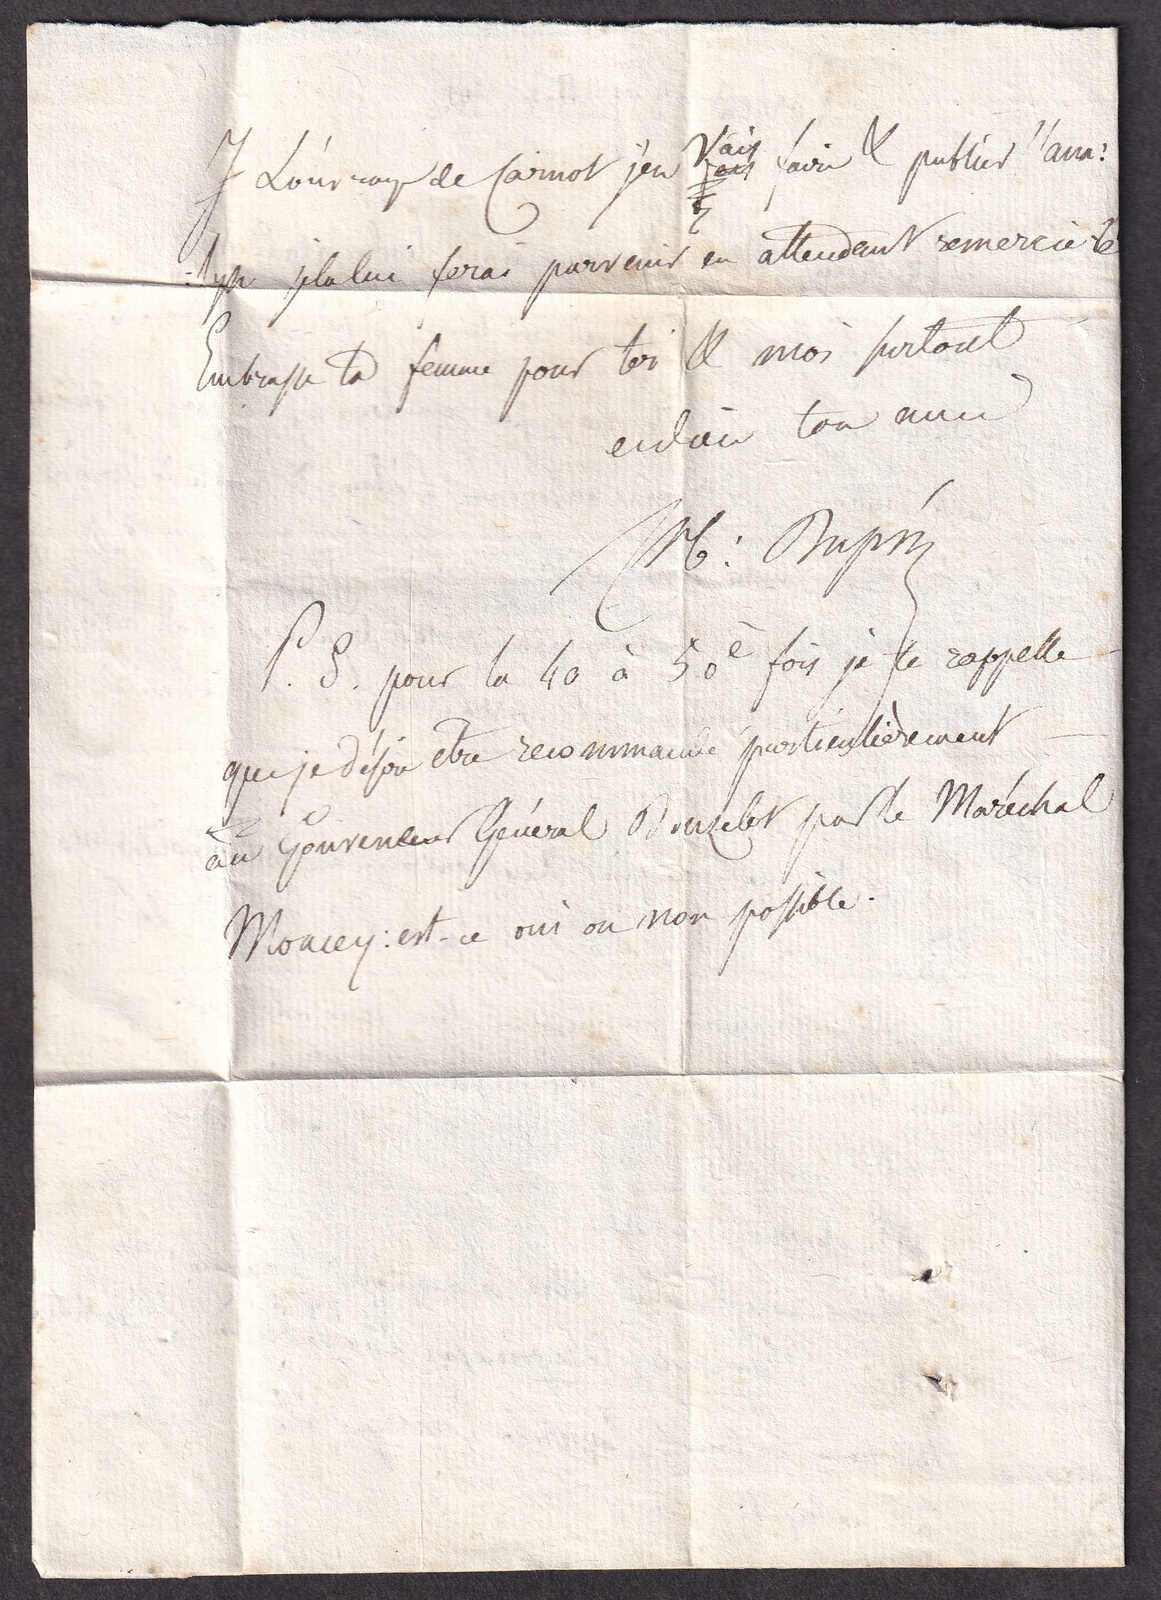 L'ouvrage de Carnot j'en vais faire & publier l'ana:
:lyse je la lui ferai parvenir en attendant remercie le
Embrasse ta femme pour toi & moi surtout
ton ami
M: Dupré
P. S. pour la 40 à 50e fois je te rappelle
que je désire etre recommandé particulièrement
au Gouverneur Général par le Maréchal
Moncey: est-ce oui ou non possible.